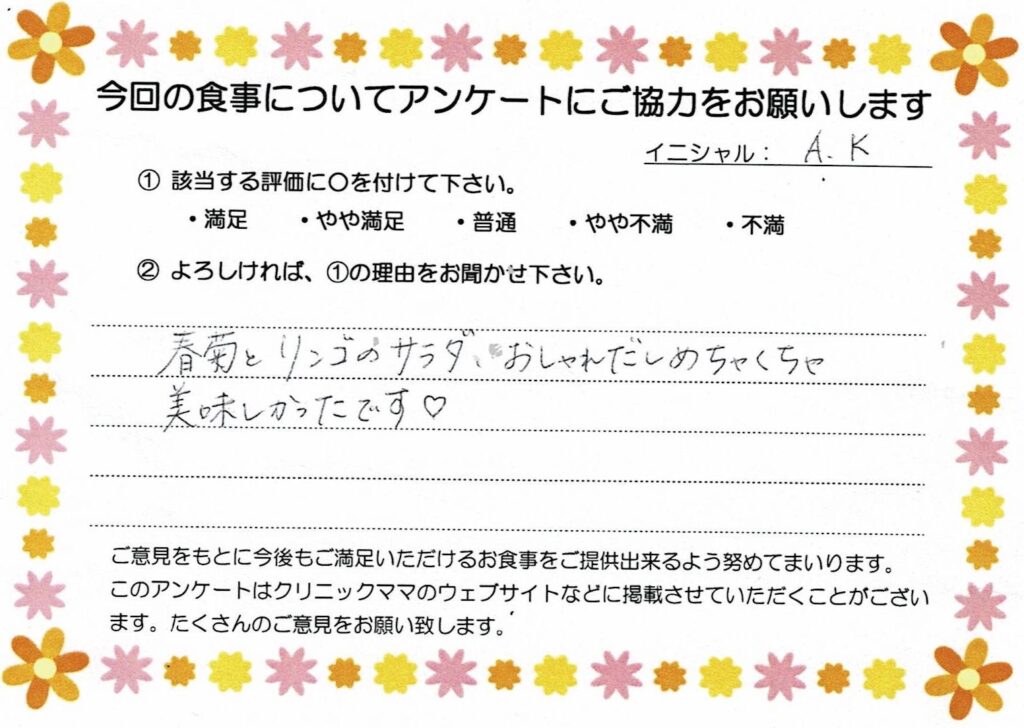 今回の食事についてアンケートにご協力をお願いします
イニシャル： A. K
① 該当する評価に〇を付けて下さい。
・満足 ・やや満足 ・普通 ・やや不満 ・不満
② よろしければ、①の理由をお聞かせ下さい。
春菊とリンゴのサラダ、おしゃれだしめちゃくちゃ
美味しかったです♡
ご意見をもとに今後もご満足いただけるお食事をご提供出来るよう努めてまいります。
このアンケートはクリニックママのウェブサイトなどに掲載させていただくことがござい
ます。たくさんのご意見をお願い致します。